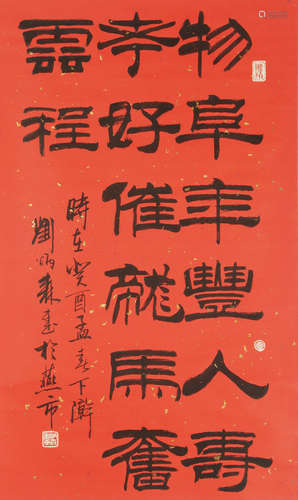 物阜年豐人壽
考好催龍馬奮
雲程
時在癸酉孟春下澣
劉炳森書於燕市